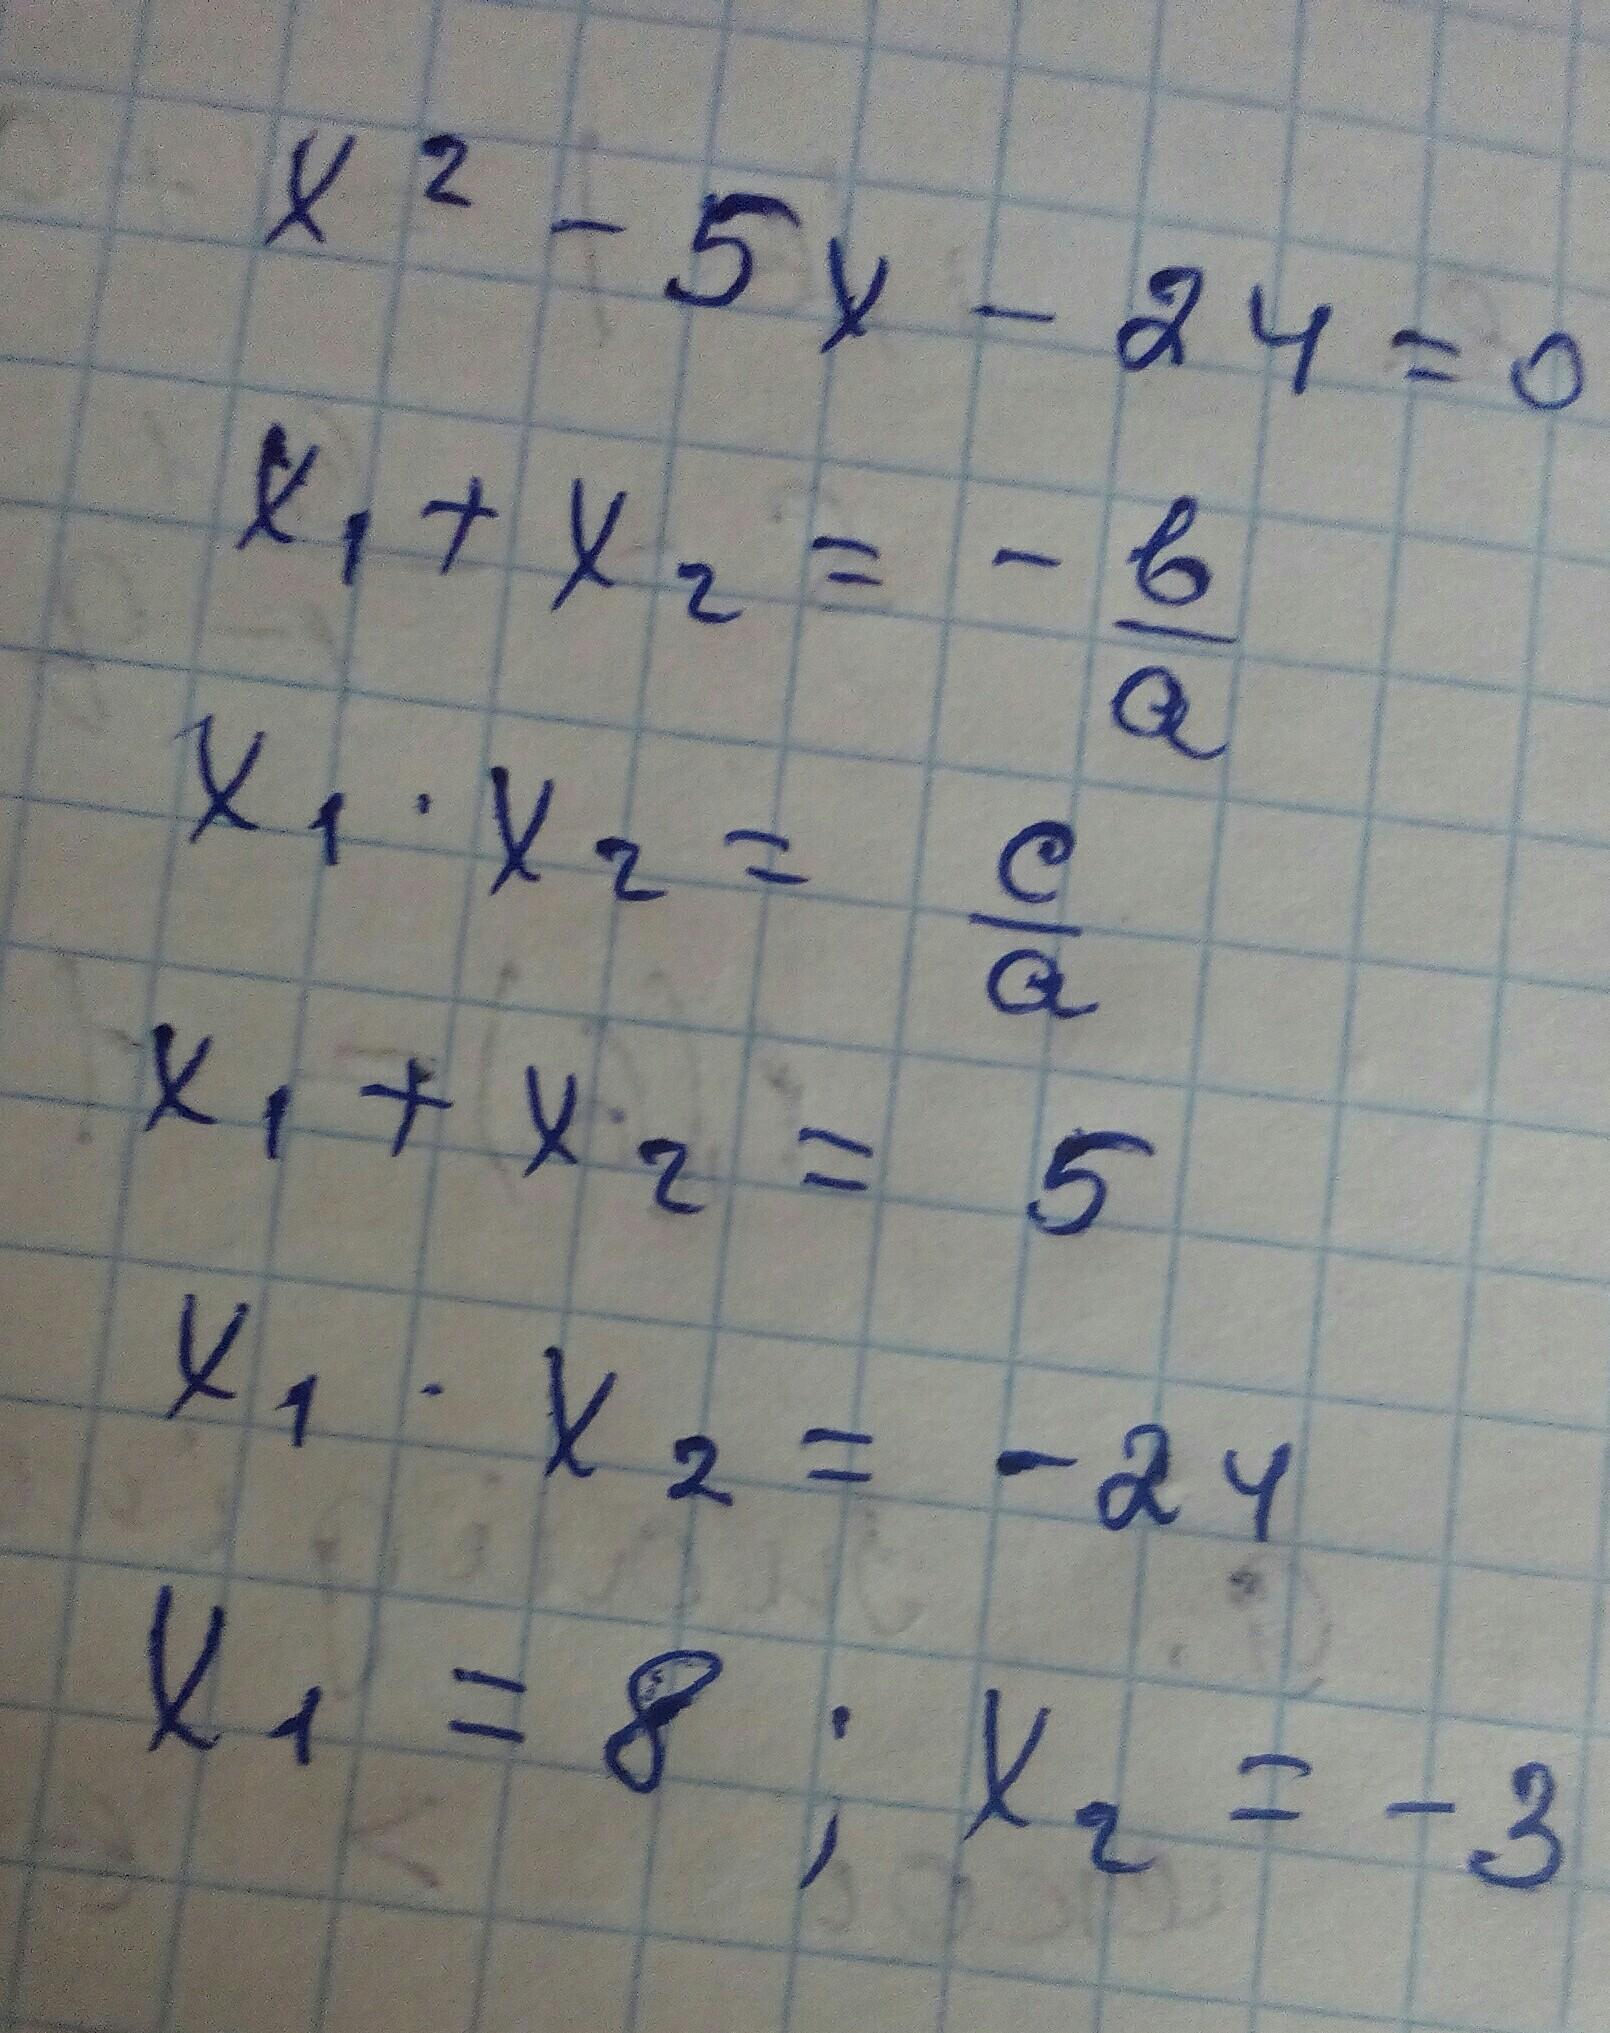 x² - 5x - 24 = 0
x₁ + x₂ = - b/a
x₁ · x₂ = c/a
x₁ + x₂ = 5
x₁ · x₂ = -24
x₁ = 8 ; x₂ = -3